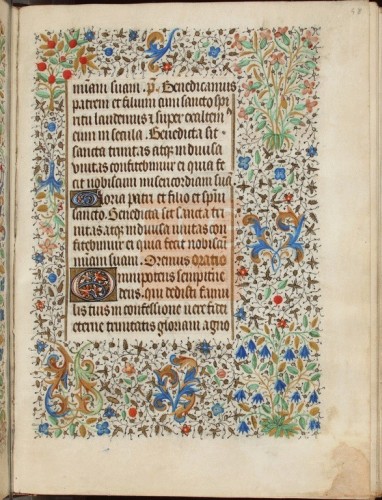 miam suam. p. Benedicamus
patrem et filium cum sancto spi
ritu laudemus et super exaltem
eum in secula. Benedicta sit
sancta trinitas atqz indiuisa
unitas confitebimur ei quia fe
cit nobiscum misericordiam suā.
Gloria patri et filio et spiri
sancto. Benedicta sit sancta tri
nitas atqz indiuisa unitas con
fitebimur ei quia fecit nobiscū
miam suam. Oremus oratio
Omnipotens sempiterne
deus. qui dedisti famu
lis tuis in confessione uere fidei
eterne trinitatis gloriam agno